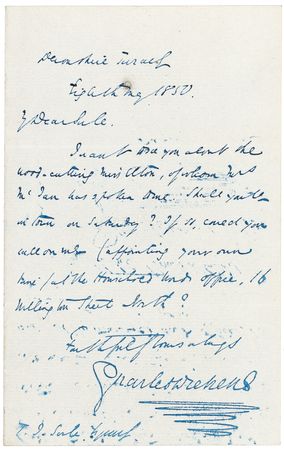 Devonshire Terrace
Eighth May 1850.
My Dear Serle.
I want to see you about the
wood-cutting Miss Alton, of whom Mrs
McIan has spoken to me. Shall you be
in town on Saturday? If so, could you
call on me (appointing your own
time) at the Household Words office, 16
Wellington Street North?
Faithfully Yours always
Charles Dickens
T. J. Serle Esquire